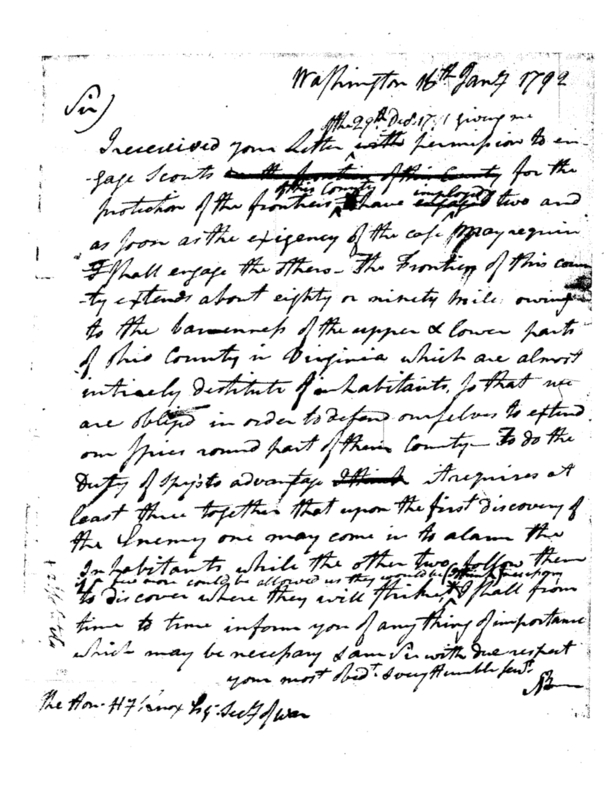 Washington 16th Jany 1792
Sir)
of the 29th Decr. 17 1 giving me
I receeived your Letter with permission to en-
-gage Scouts on the frontiers of this County for the
of this County imployd
protection of the frontiers I have engaged two and
as soon as the exigency of the case may require
I shall engage the others - The Frontier of this coun
-ty extends about eighty or ninety mile owing
to the barrenness of the upper & lower parts
of Ohio County in Virginia which are almost
intirely destitute of inhabitants, so that we
are obliged in order to defend ourselves to extend
our spies round part of their County - To do the
Duty of spys to advantage I think it requires at
least three together that upon the first discovery of
the Enemy one may come in to alarm the
Inhabitants while the other two follow them
if two more could be allowed us they would be I think
to discover where they will strike, I shall from
time to time inform you of any thing of importance
which may be necessary I am Sir with due respect
your most obedt. & very Humble servt.
The Hon. H Knox Esq. Secy of War